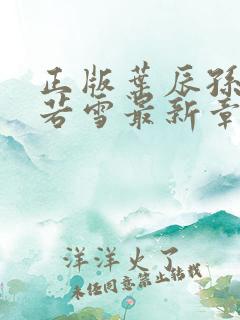 正版葉辰孫
若雪最新章
洋洋火了
未经同意禁止转载